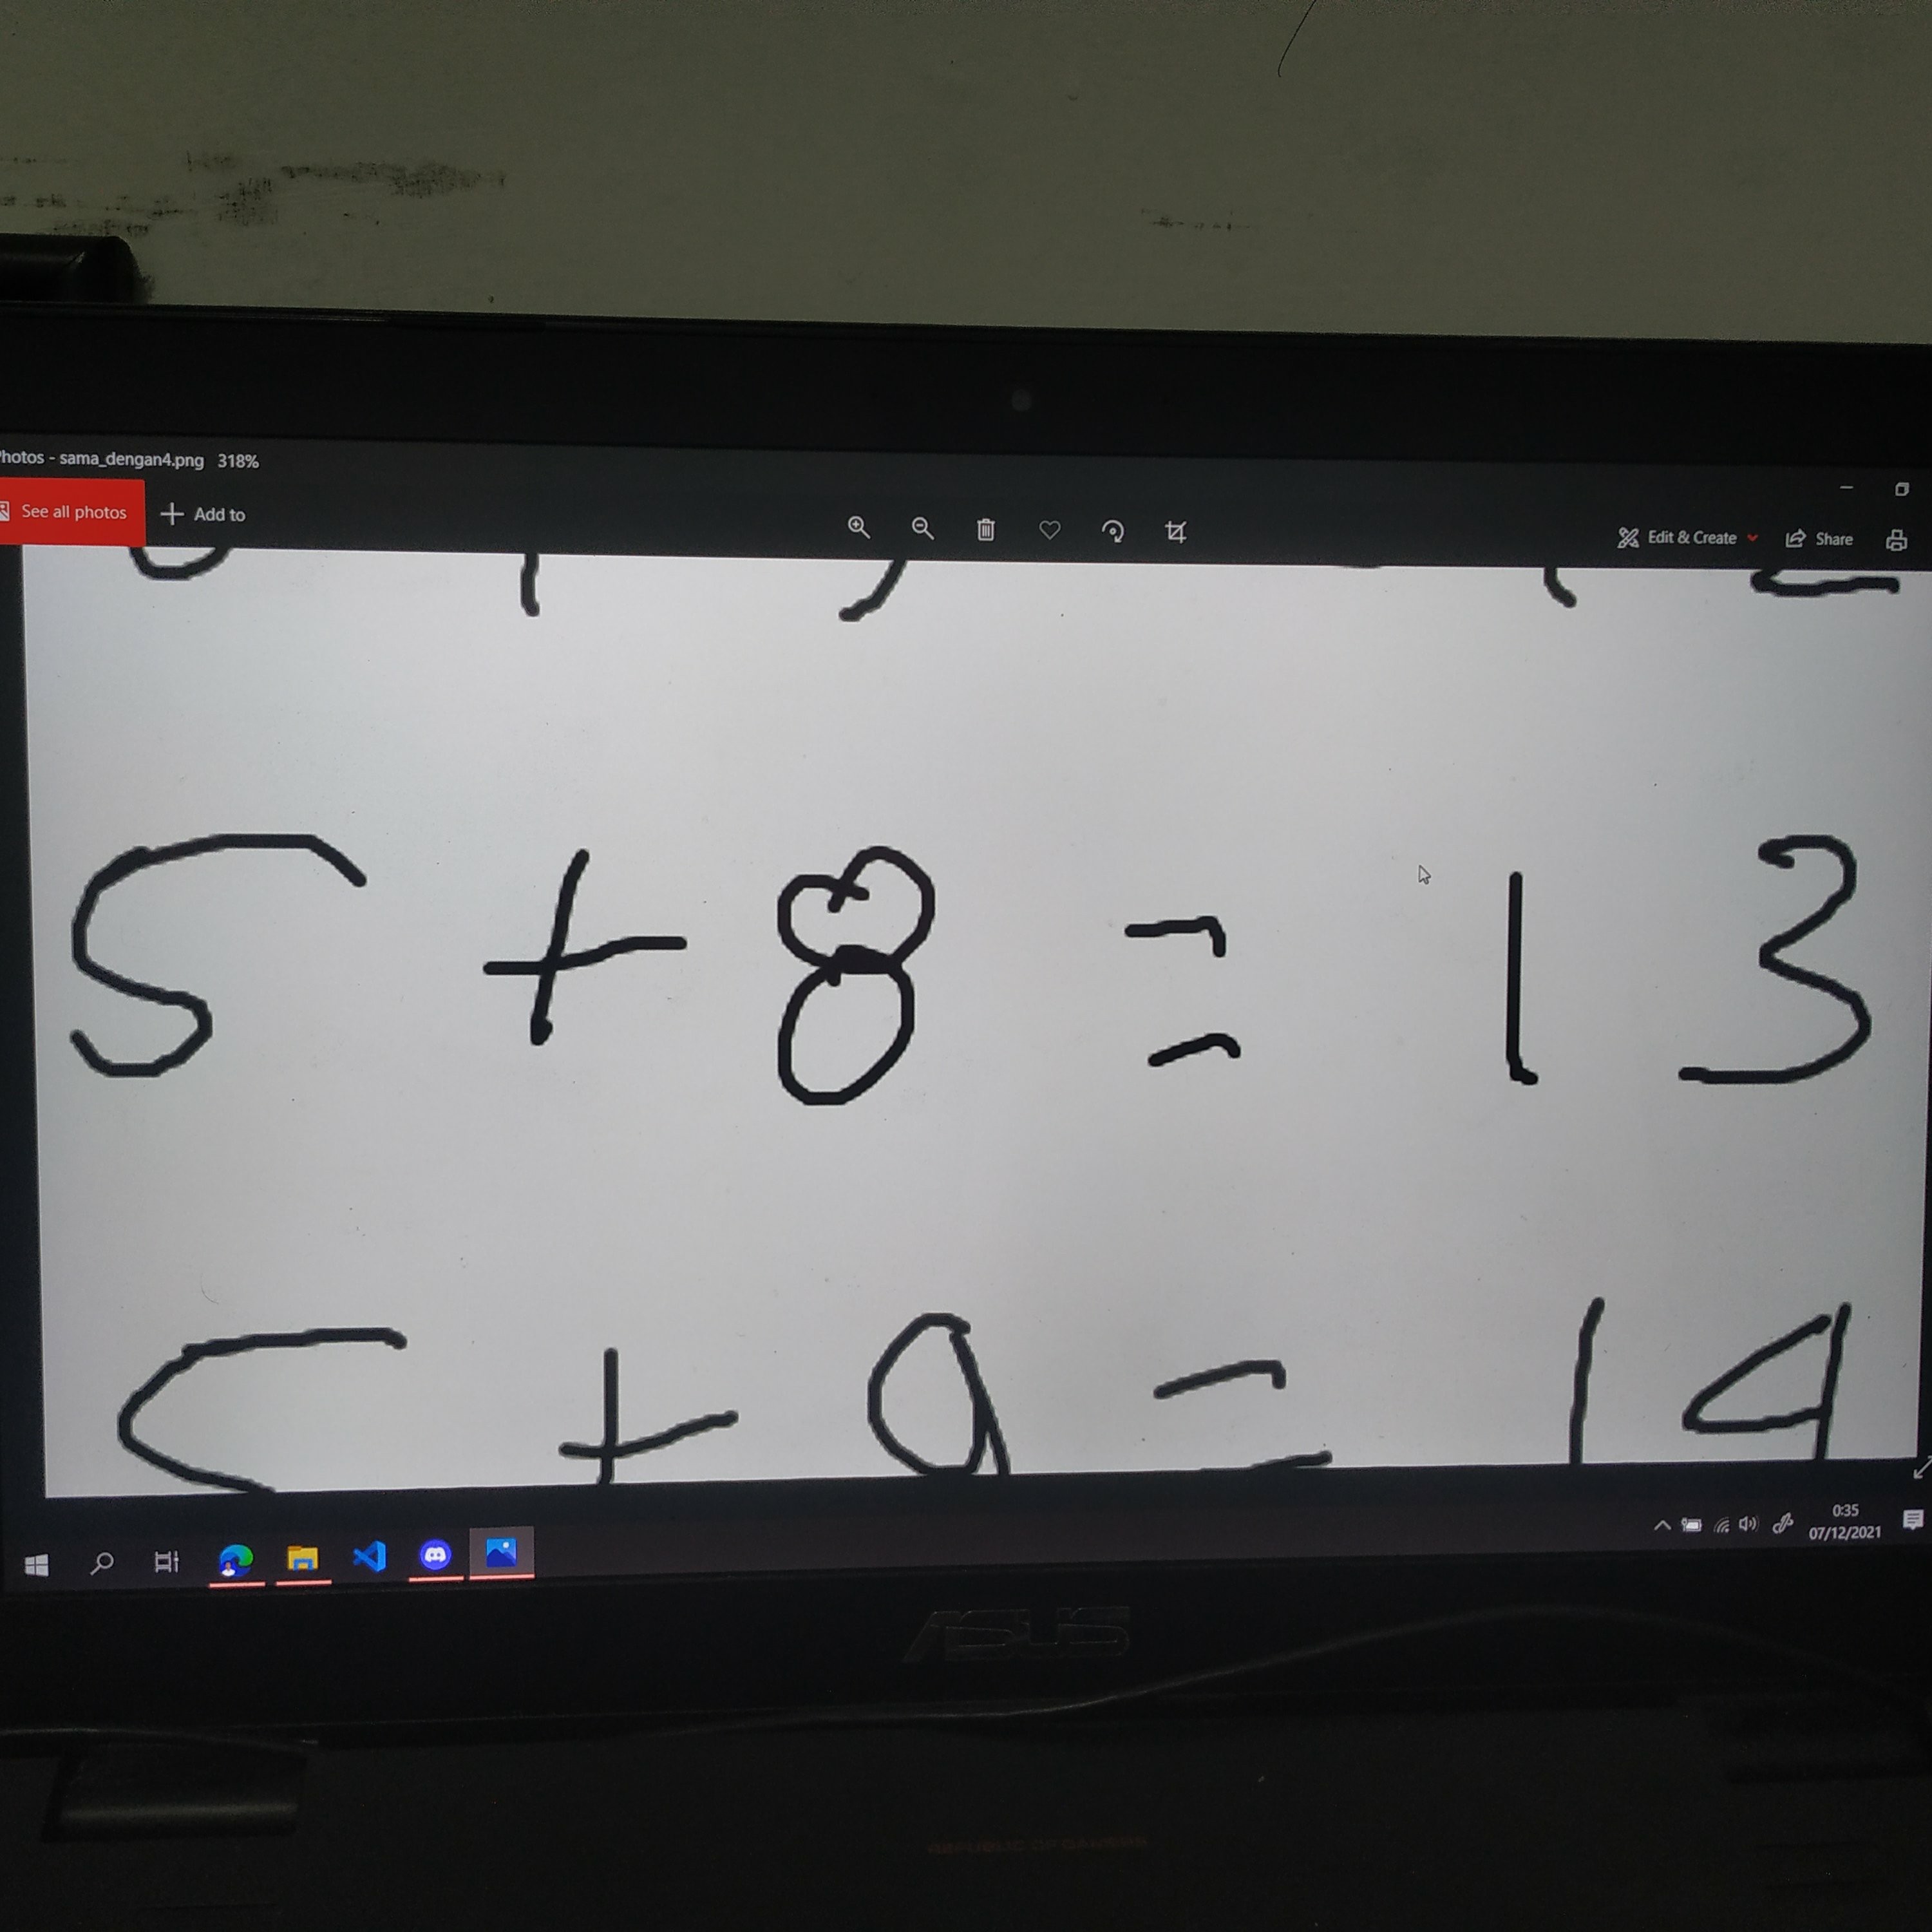 Photos - sama_dengan4.png 318%
See all photos Add to Edit & Create Share
5 + 8 = 13
5 + 9 = 14
0:35
07/12/2021
ASUS